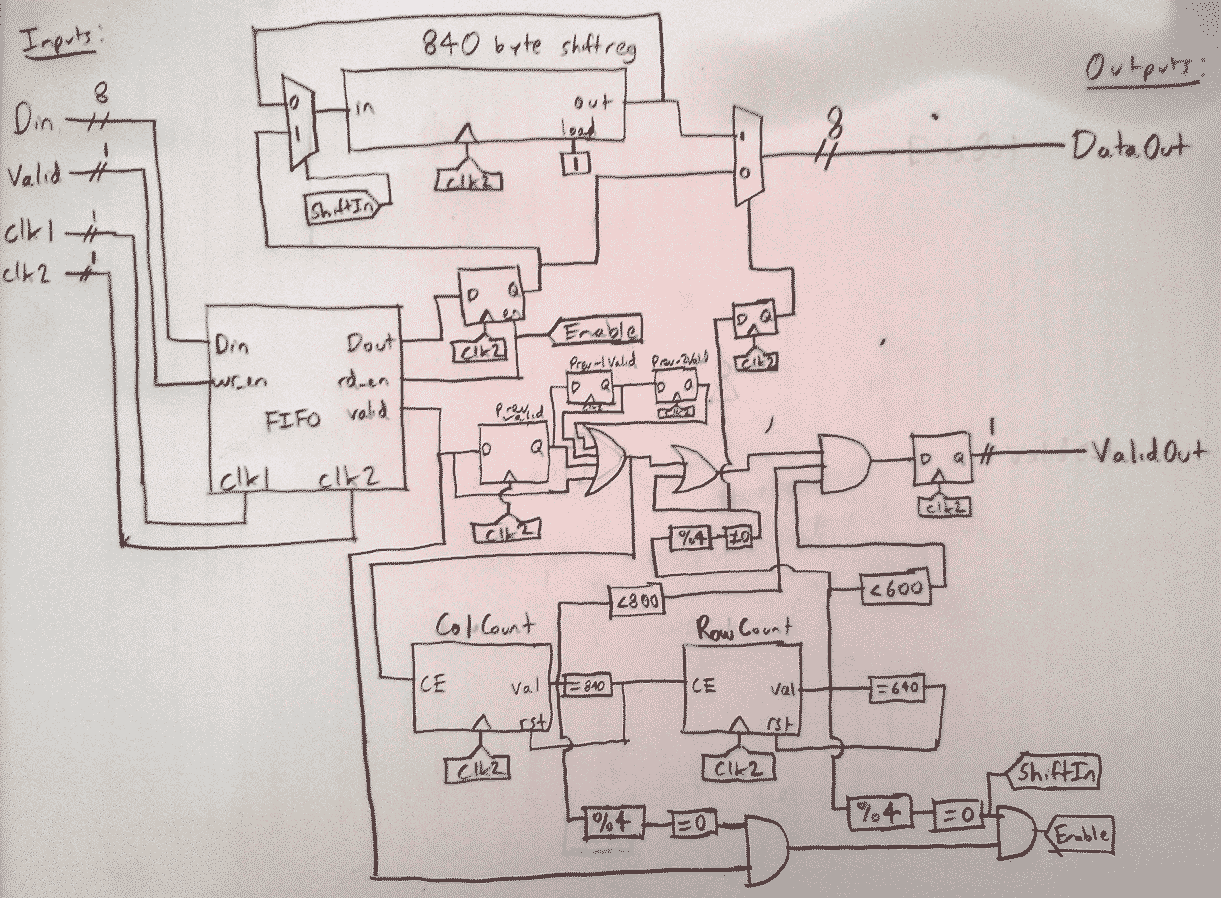 Inputs:
Din
8
Valid
1
clk1
1
clk2
1
840 byte shiftreg
0
1
in
out
load
1
clk2
ShiftIn
1
0
8
Outputs:
DataOut
Din
wr_en
FIFO
Dout
rd_en
valid
clk1
clk2
D
Q
en
clk2
Enable
D
Q
clk2
Prev-1Valid
D
Q
clk2
Prev-2Valid
D
Q
clk2
Prev
Valid
D
Q
clk2
D
Q
clk2
1
ValidOut
%4
≠0
<800
<600
ColCount
CE
val
rst
clk2
=840
RowCount
CE
val
rst
clk2
=640
%4
=0
%4
=0
ShiftIn
Enable